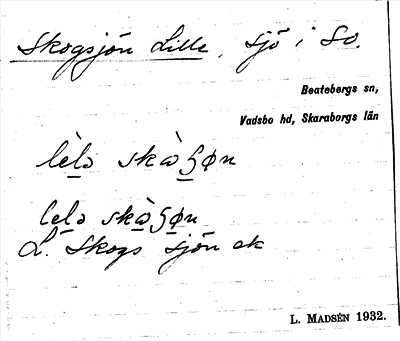 Skogsjön Lille, sjö i So.
Beatebergs sn,
Vadsbo hd, Skaraborgs län
lèlə skὼꞩøn
lelə skὼꞩøn
L. Skogs sjön ek
L. MADSÉN 1932.